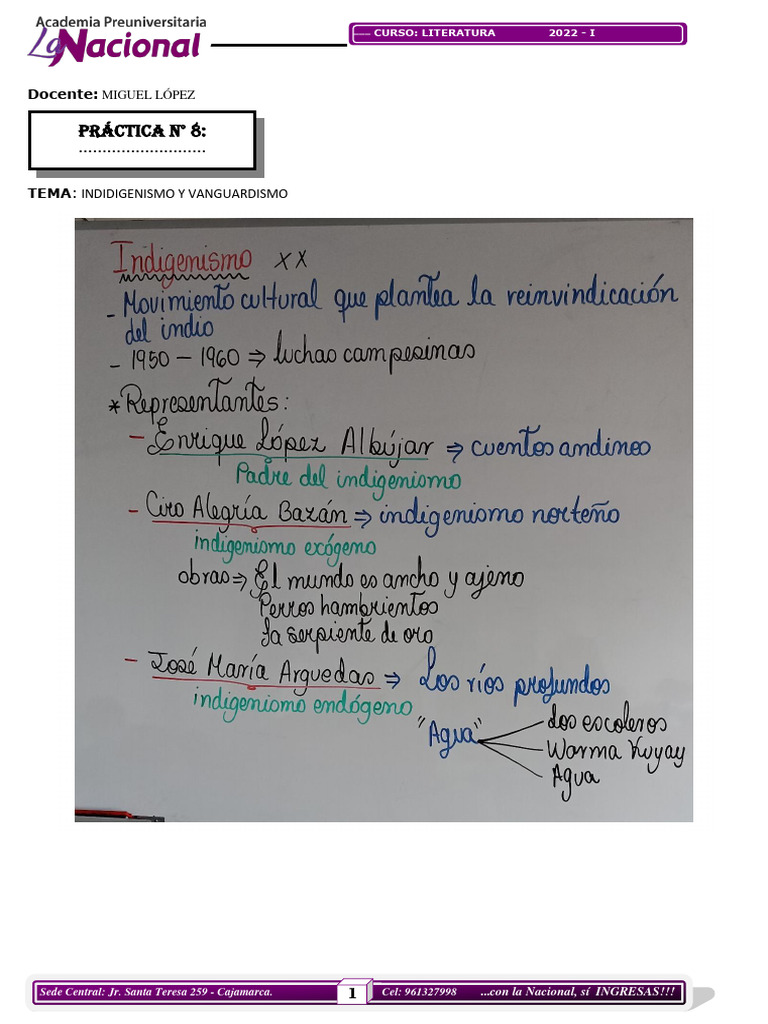 Academia Preuniversitaria
La Nacional
CURSO: LITERATURA 2022 - I
Docente: MIGUEL LÓPEZ
PRÁCTICA N° 8:
...........................
TEMA: INDIDIGENISMO Y VANGUARDISMO
Indigenismo XX
- Movimiento cultural que plantea la reinvindicación
del indio
- 1950 - 1960 ⇒ luchas campesinas
* Representantes:
- Enrique López Albújar ⇒ cuentos andinos
Padre del indigenismo
- Ciro Alegría Bazán ⇒ indigenismo norteño
indigenismo exógeno
obras ⇒ El mundo es ancho y ajeno
Perros hambrientos
La serpiente de oro
- José María Arguedas ⇒ Los ríos profundos
indigenismo endógeno
"Agua"
Los escoleros
Warma Kuyay
Agua
Sede Central: Jr. Santa Teresa 259 - Cajamarca. 1 Cel: 961327998 ...con la Nacional, sí INGRESAS!!!